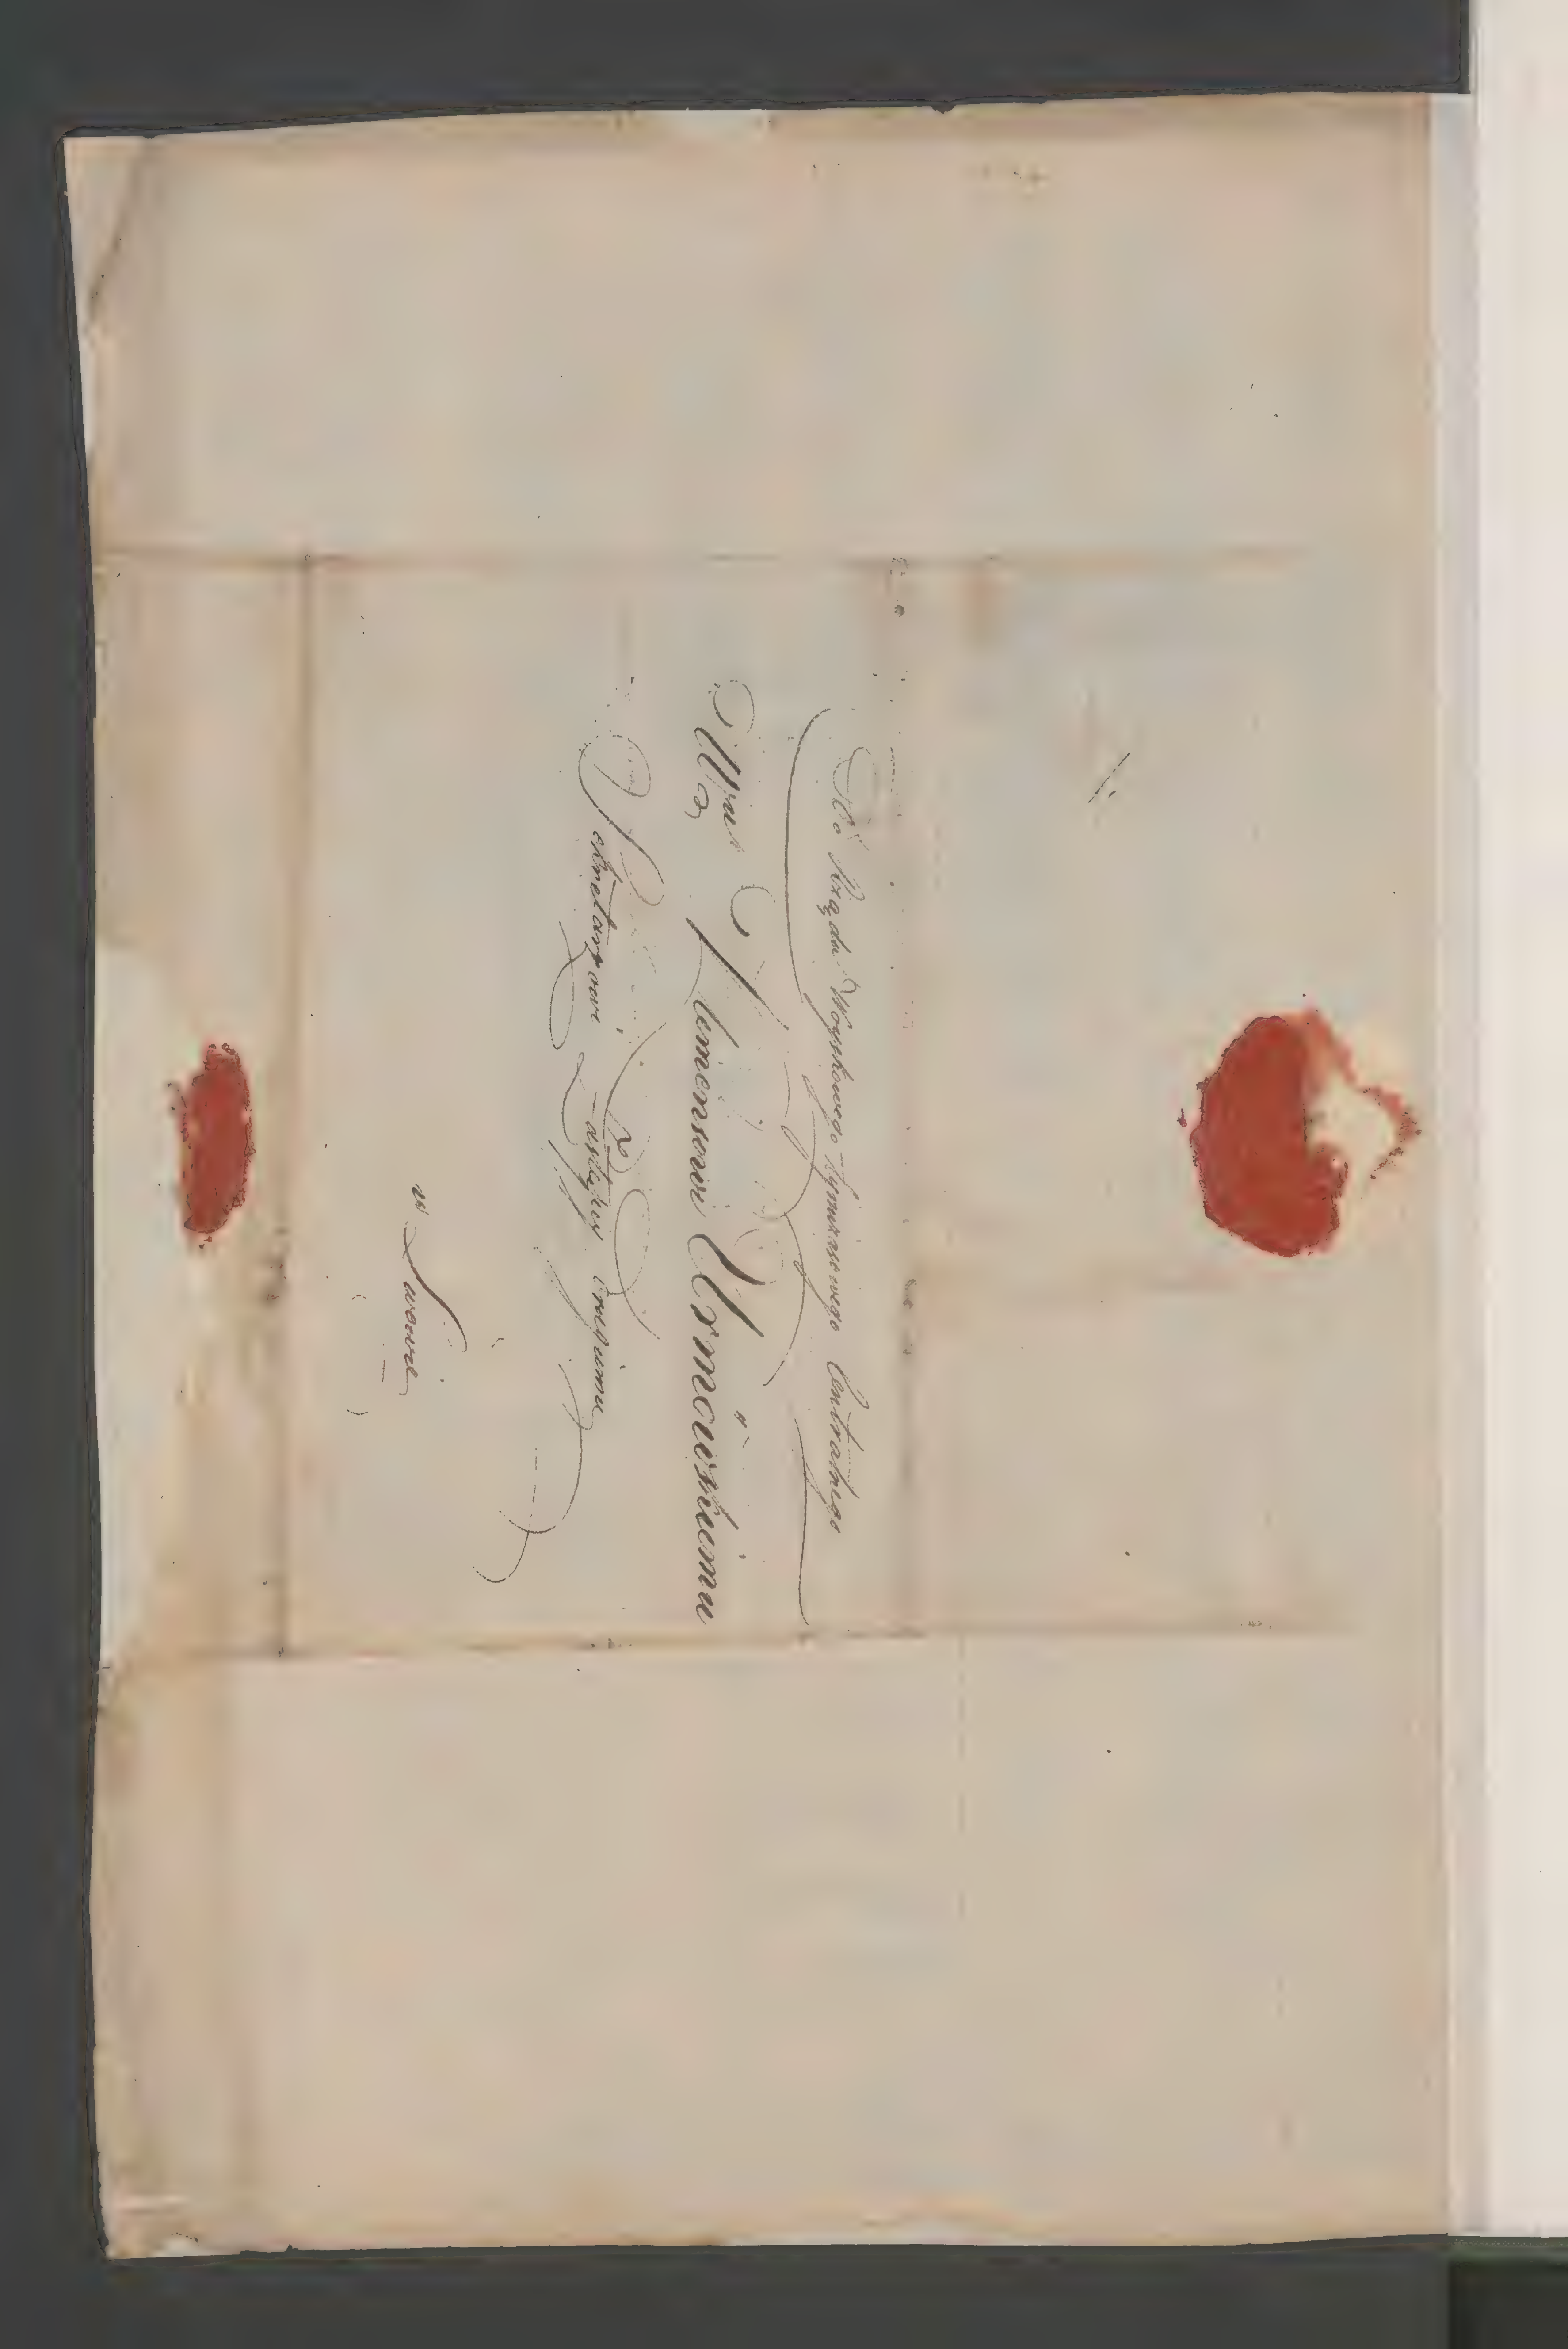 Do Rządu Woyskowego Tymczasowego Centralnego
Mu Klemensowi Urmowskiemu
Sekretarzowi Zastępcy Intgimu
w Lwowie